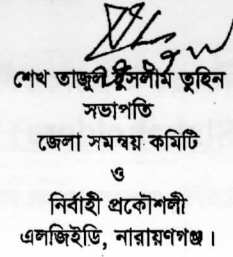 শেখ তাজুল ইসলাম তুহিন
সভাপতি
জেলা সমন্বয় কমিটি
ও
নির্বাহী প্রকৌশলী
এলজিইডি, নারায়ণগঞ্জ।